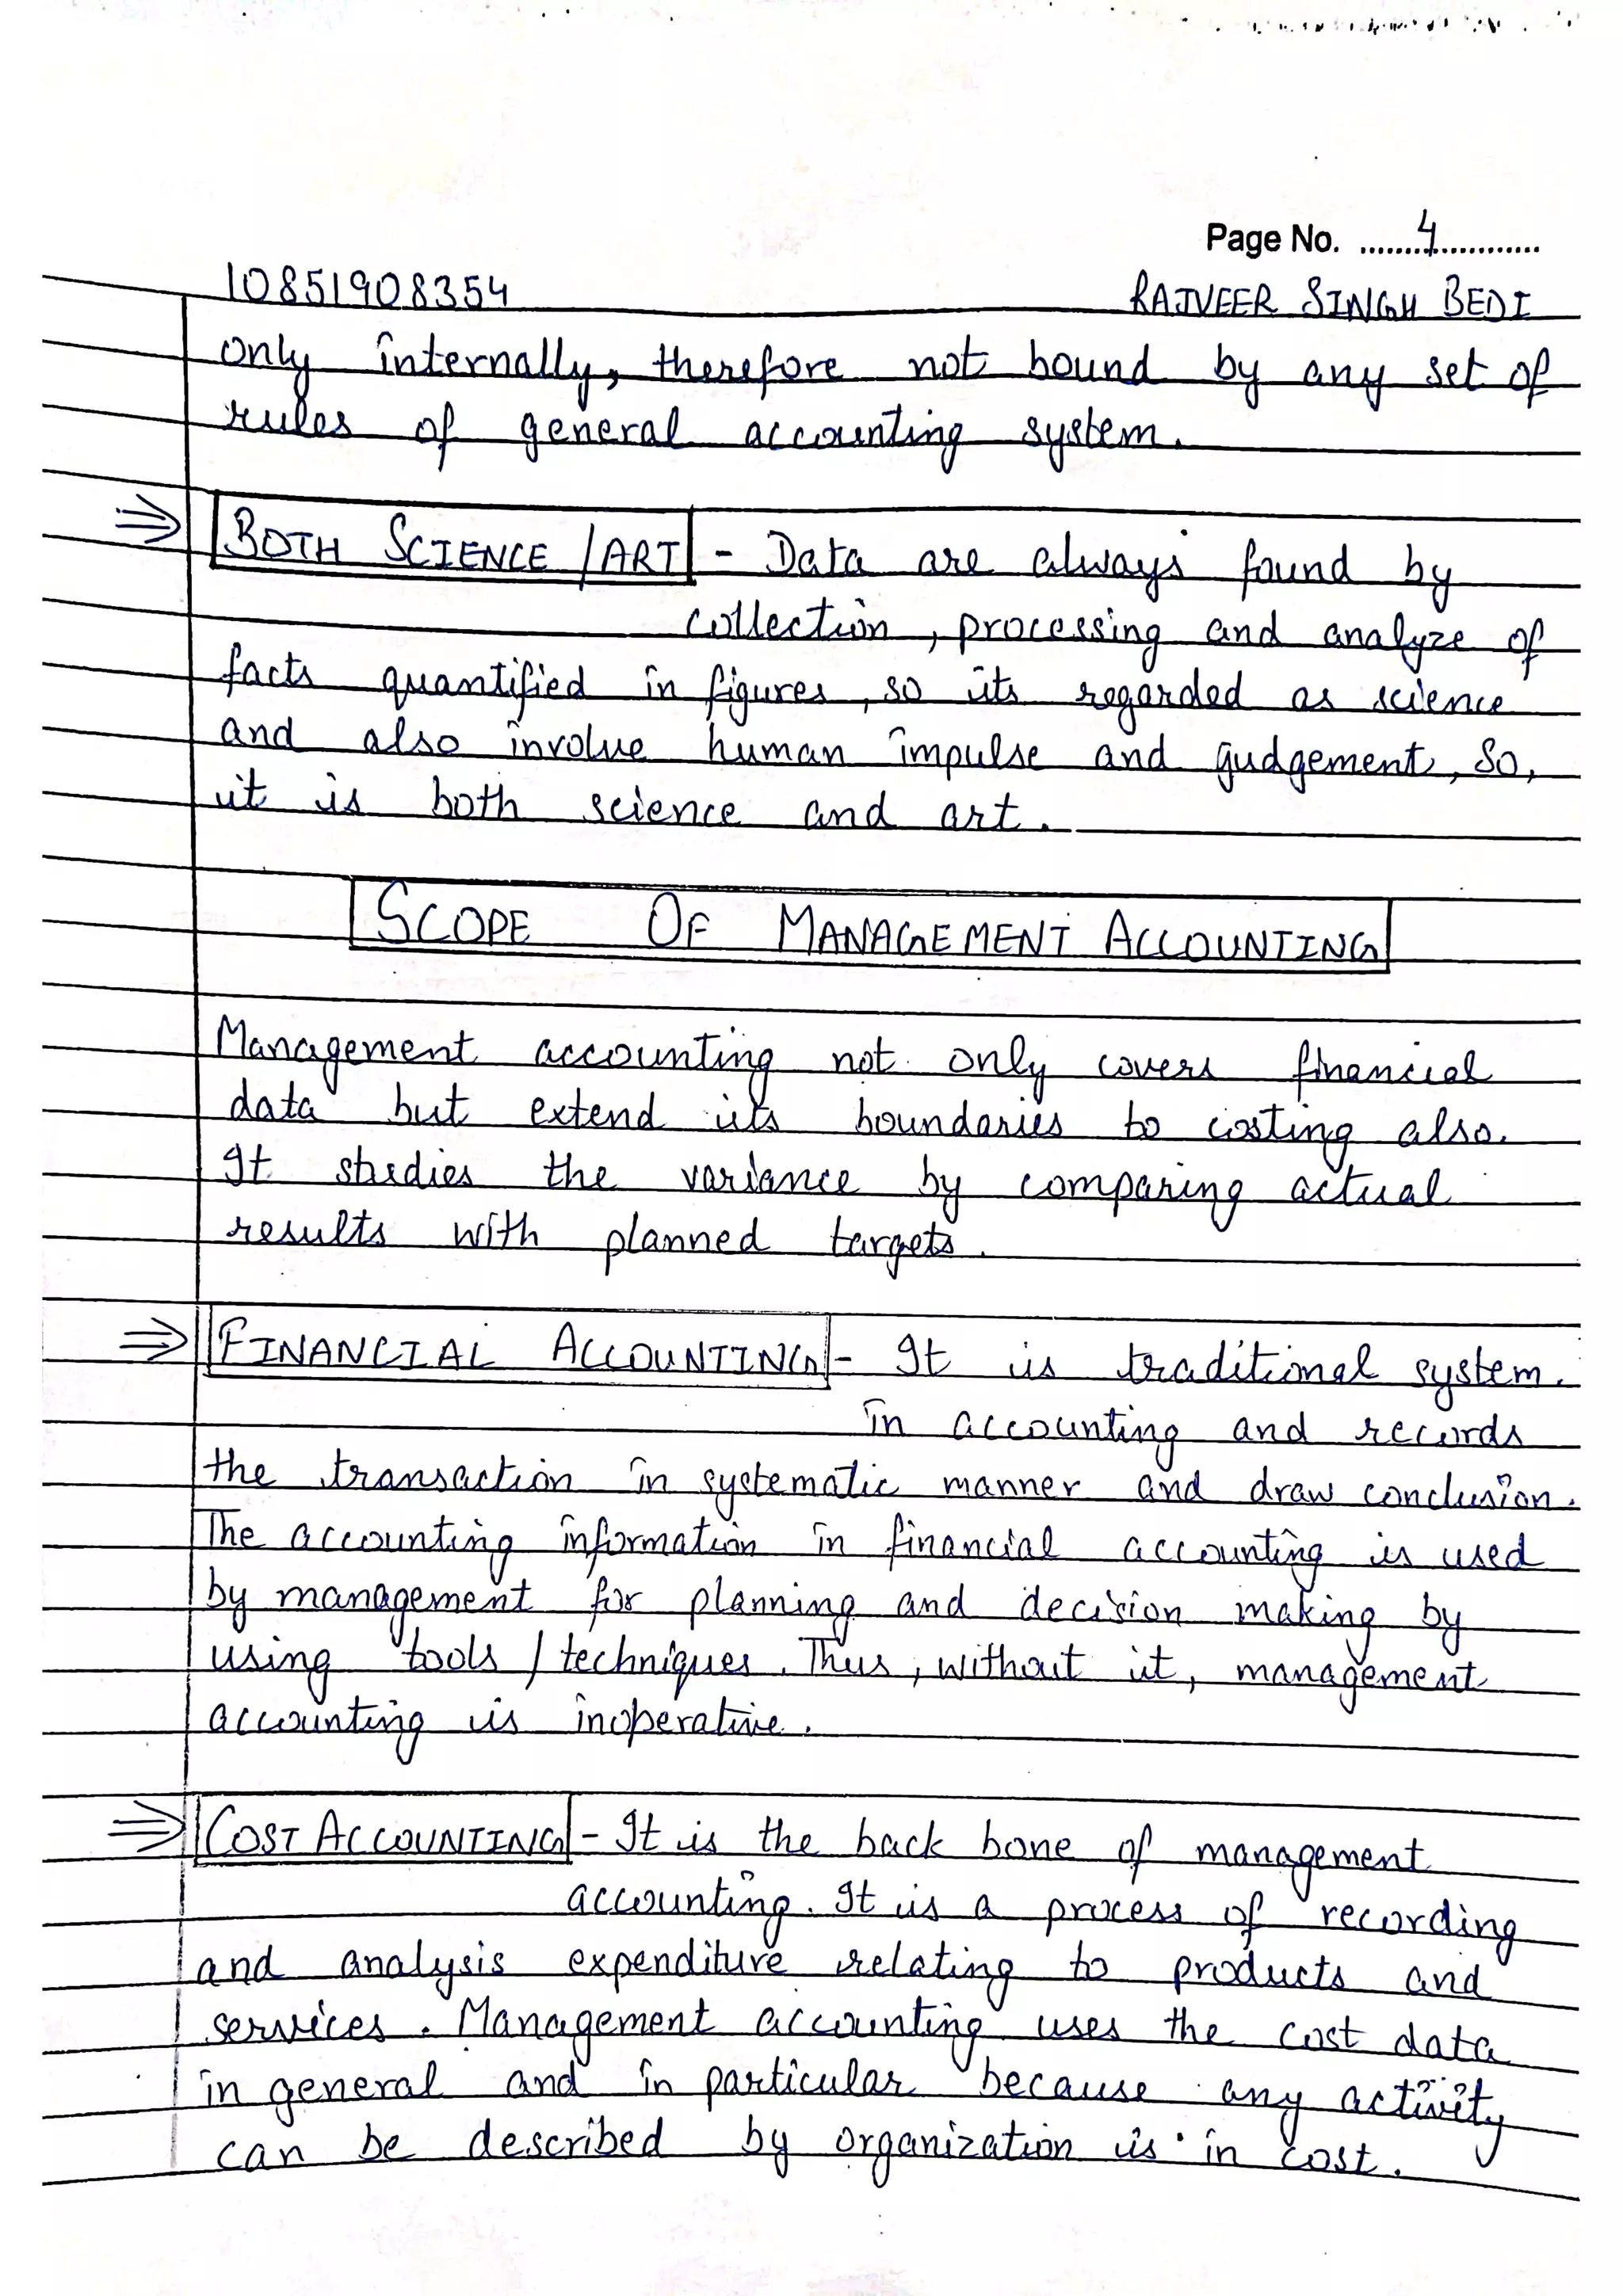 Page No. .......4............
10851908354 RAJVEER SINGH BEDI
only internally, therefore not bound by any set of
rules of general accounting system.
⇒ BOTH SCIENCE / ART - Data are always found by
collection, processing and analyze of
facts quantified in figures, so its regarded as science
and also involve human impulse and gudgement, So,
it is both science and art.
SCOPE OF MANAGEMENT ACCOUNTING
Management accounting not only covers financial
data but extend its boundaries to costing also.
It studies the variance by comparing actual
results with planned targets.
⇒ FINANCIAL ACCOUNTING - It is traditional system.
in accounting and records
the transaction in systematic manner and draw conclusion.
The accounting information in financial accounting is used
by management for planning and decision making by
using tools / techniques. Thus, without it, management
accounting is inoperative.
⇒ COST ACCOUNTING - It is the back bone of management
accounting. It is a process of recording
and analysis expenditure relating to products and
services. Management accounting uses the cost data
in general and in particular because any activity
can be described by organization is in cost.